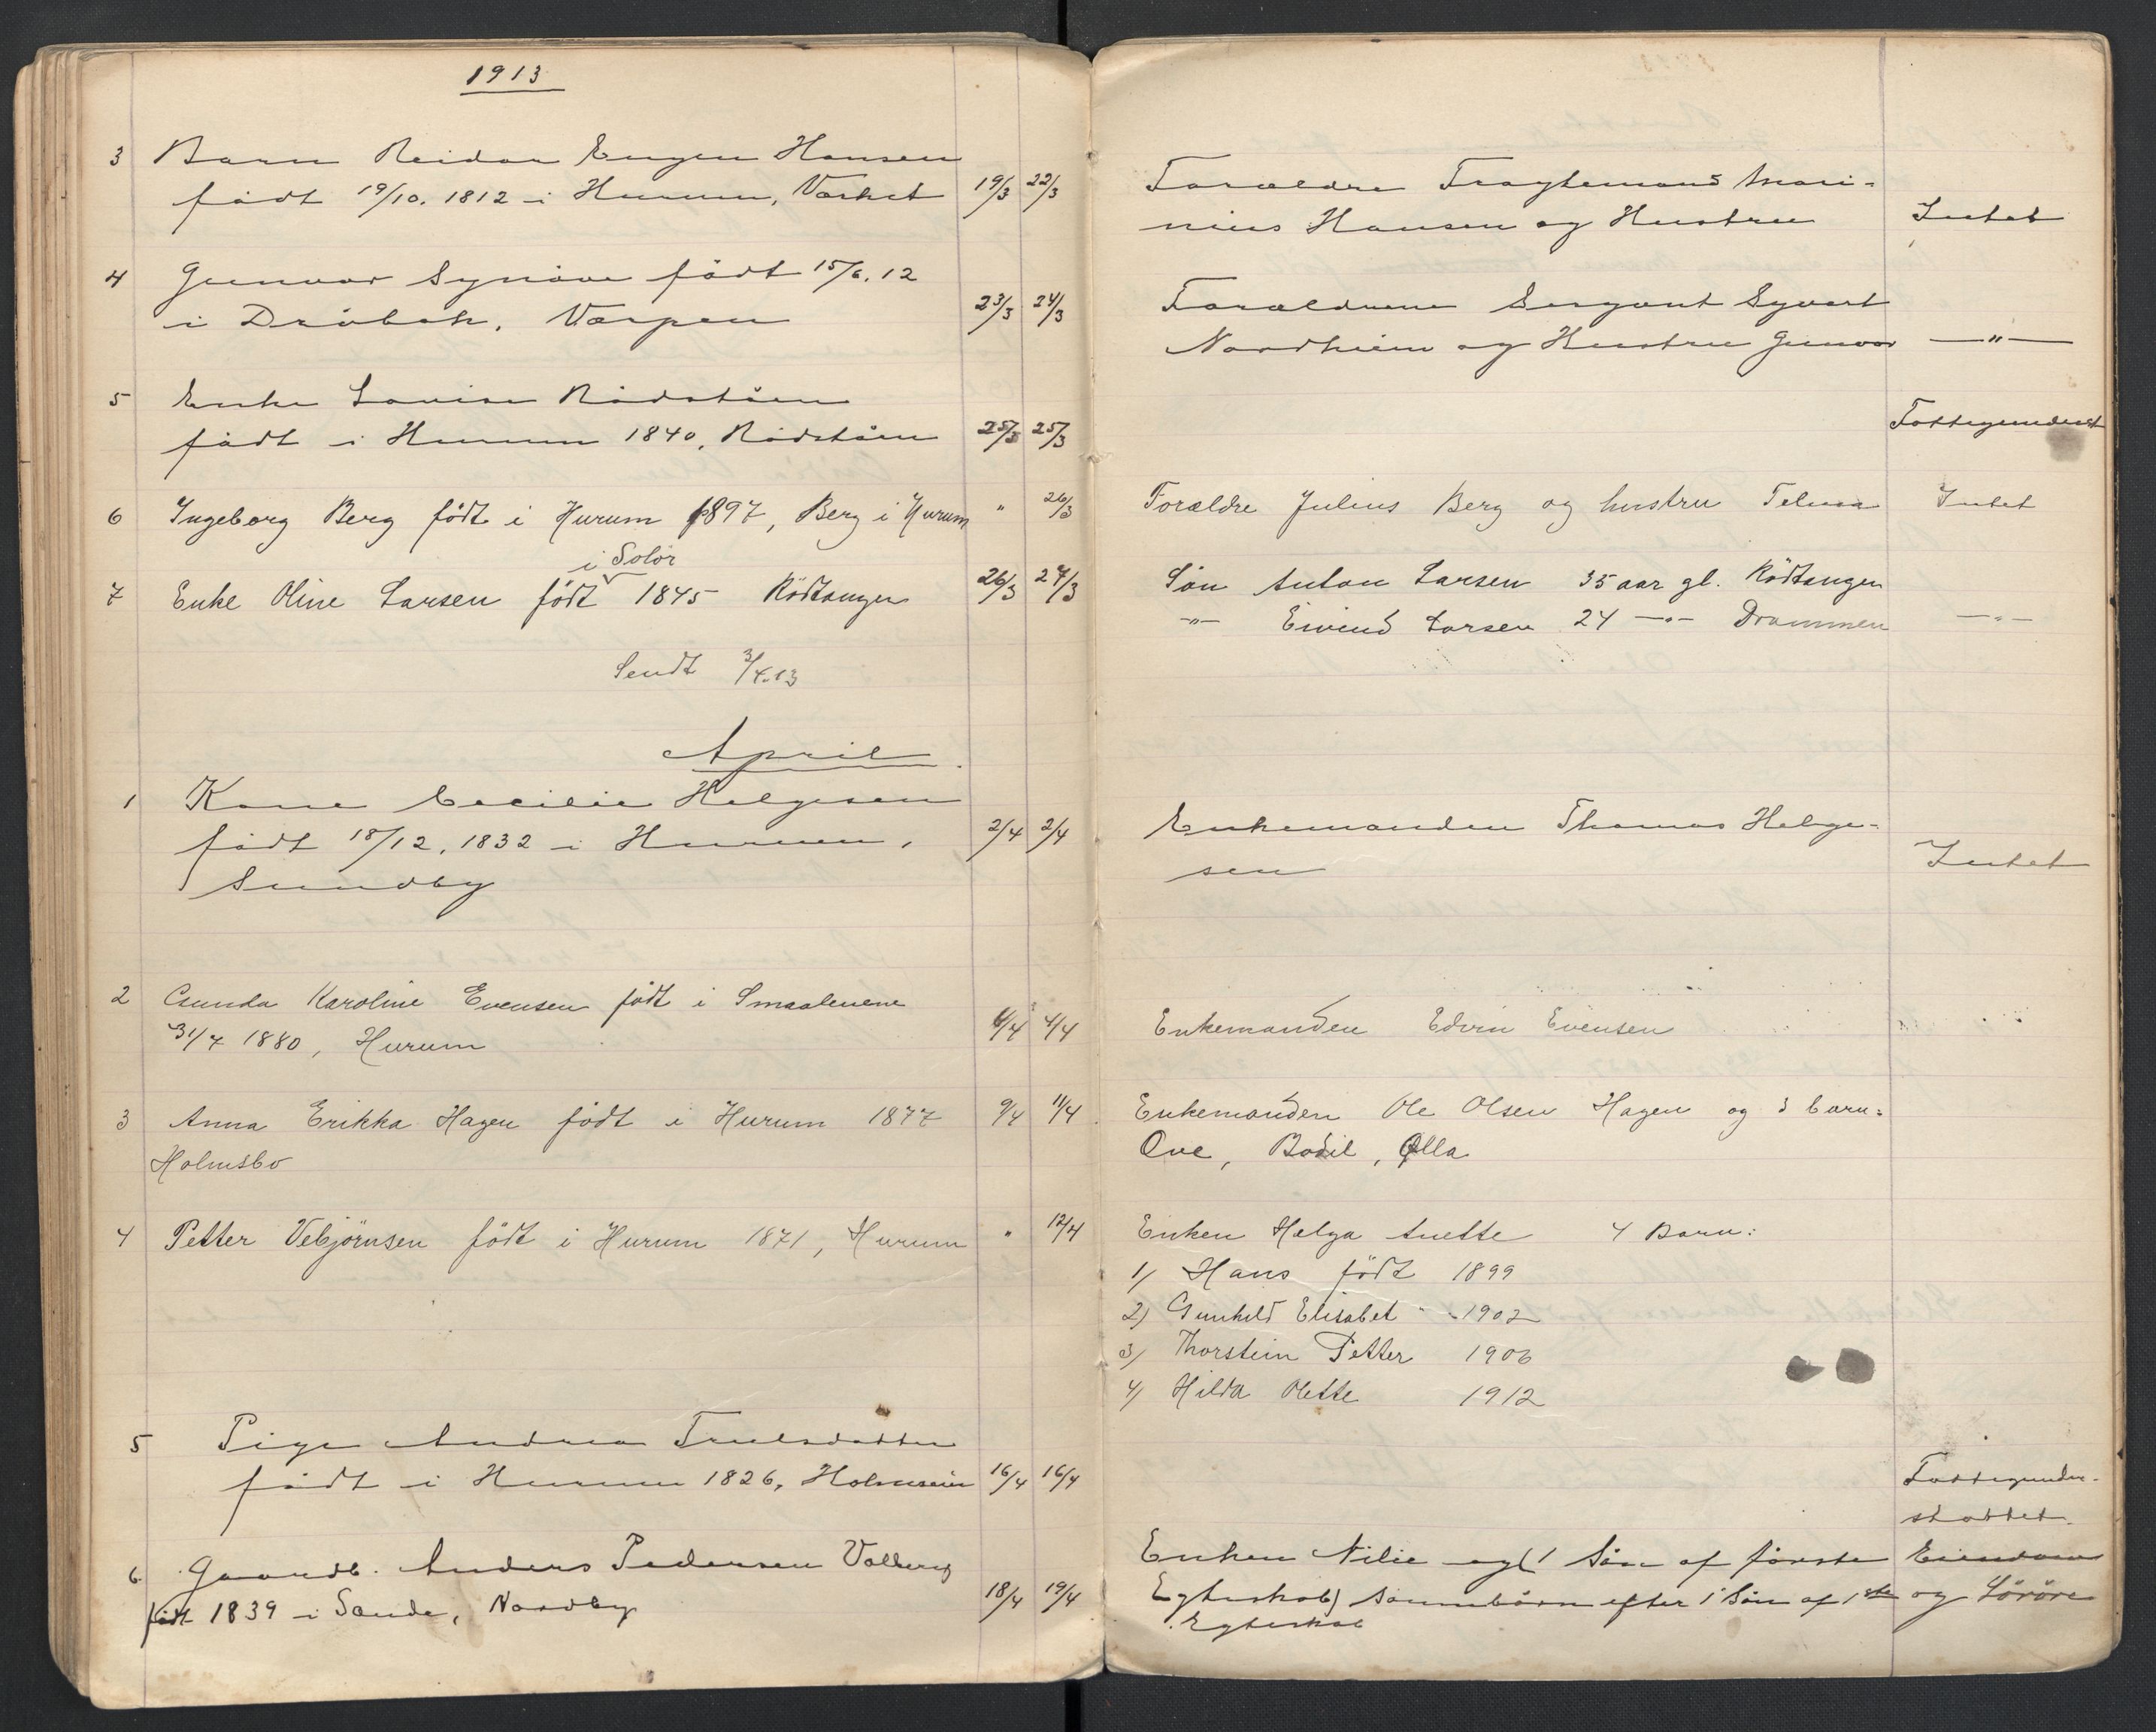 1913
3 Barn Reidar Eugen Hansen
født 19/10. 1812 i Hurum, Værket 19/3 22/3
4 Gunvor Synöve födt 15/6. 12
i Dröbak, Værpen 23/3 24/3
5 Enke Lovise Rödstöen
födt i Hurum 1840, Rödstöen 25/3 25/3
6 Ingeborg Berg födt i Hurum 1897, Berg i Hurum " 26/3
i Solör
7 Enke Oline Larsen födt 1845 Rödtangen 26/3 27/3
Sendt 3/4.13
April
1 Kone Cecilie Helgesen
födt 18/12. 1832 i Hurum, 2/4 2/4
Sundby
2 Gunda Karoline Evensen födt i Smaalenene
31/7 1880, Hurum 4/4
3 Anna Erikka Hagen födt i Hurum 1877 9/4 11/4
Holmsbo
4 Petter Vebjörnsen födt i Hurum 1871, Hurum " 12/4
5 Pige Andrea Trulsdatter
födt i Hurum 1826, 16/4 16/4
6 Gaardb. Anders Pedersen Volberg
født 1839 i Sande, Nordby 18/4 19/4
Forældre Fragtemand Mari-
nius Hansen og Hustru Intet
Forældrene Sergant Syvert
Nordheim og Hustru Gunvor —"—
Fattigunderst
Forældre Julius Berg og hustru Telma Intet
Sön Anton Larsen 35 aar gl. Rödtangen
—"— Eivind Larsen 24 —"— Drammen —"—
Enkemanden Thomas Helge-
sen Intet
Enkemanden Edvin Evensen
Enkemanden Ole Olsen Hagen og 3 barn:
Ove, Bodil, Olla
Enken Helga Anette 4 Barn:
1) Hans födt 1899
2) Gunhild Elisabet " 1902
3) Thorstein Petter 1906
4) Hilda Olette 1912
Fattigunder-
støttet.
Enken Nilie og (1 Sön af förste Eiendom
Egteskab) Sönnebörn efter 1 Sön af 1ste og Lösöre
Egteskab